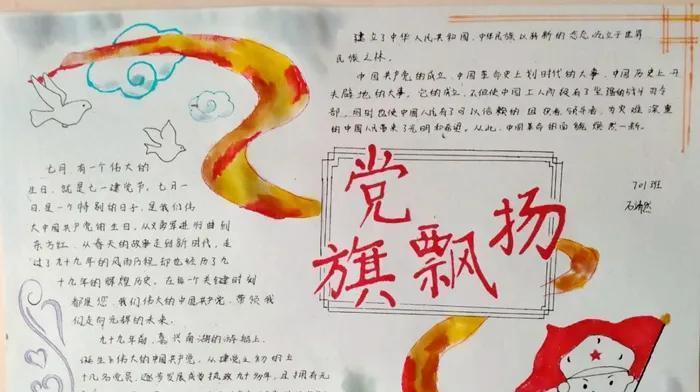 建立了中华人民共和国,中华民族以崭新的姿态屹立于世界
民族之林。
中国共产党的成立,中国革命史上划时代的大事,中国历史上开
天辟地的大事。它的成立,不但使中国工人阶级有了坚强的战斗司令
部,同时也使中国人民有了可以信赖的组织者领导者,为灾难深重
的中国人民带来了光明和希望。从此,中国革命的面貌焕然一新。
701班
党
旗飘扬
七月有一个伟大的
生日,就是七一建党节,七月一
日是一个特别的日子,是我们伟
大中国共产党的生日,从义勇军进行曲到
东方红,从春天的故事走到新时代,走
过了九十九年的风雨历程,却也经历了九
十九年的辉煌历史,在每一个关键时刻
都是您,我们伟大的中国共产党,带领我
们走向光辉的未来。
九十九年前,嘉兴南湖的游船上,
诞生了伟大的中国共产党,从建党之初的上
十几名党员,逐步发展成普执政九十多年,且拥有元